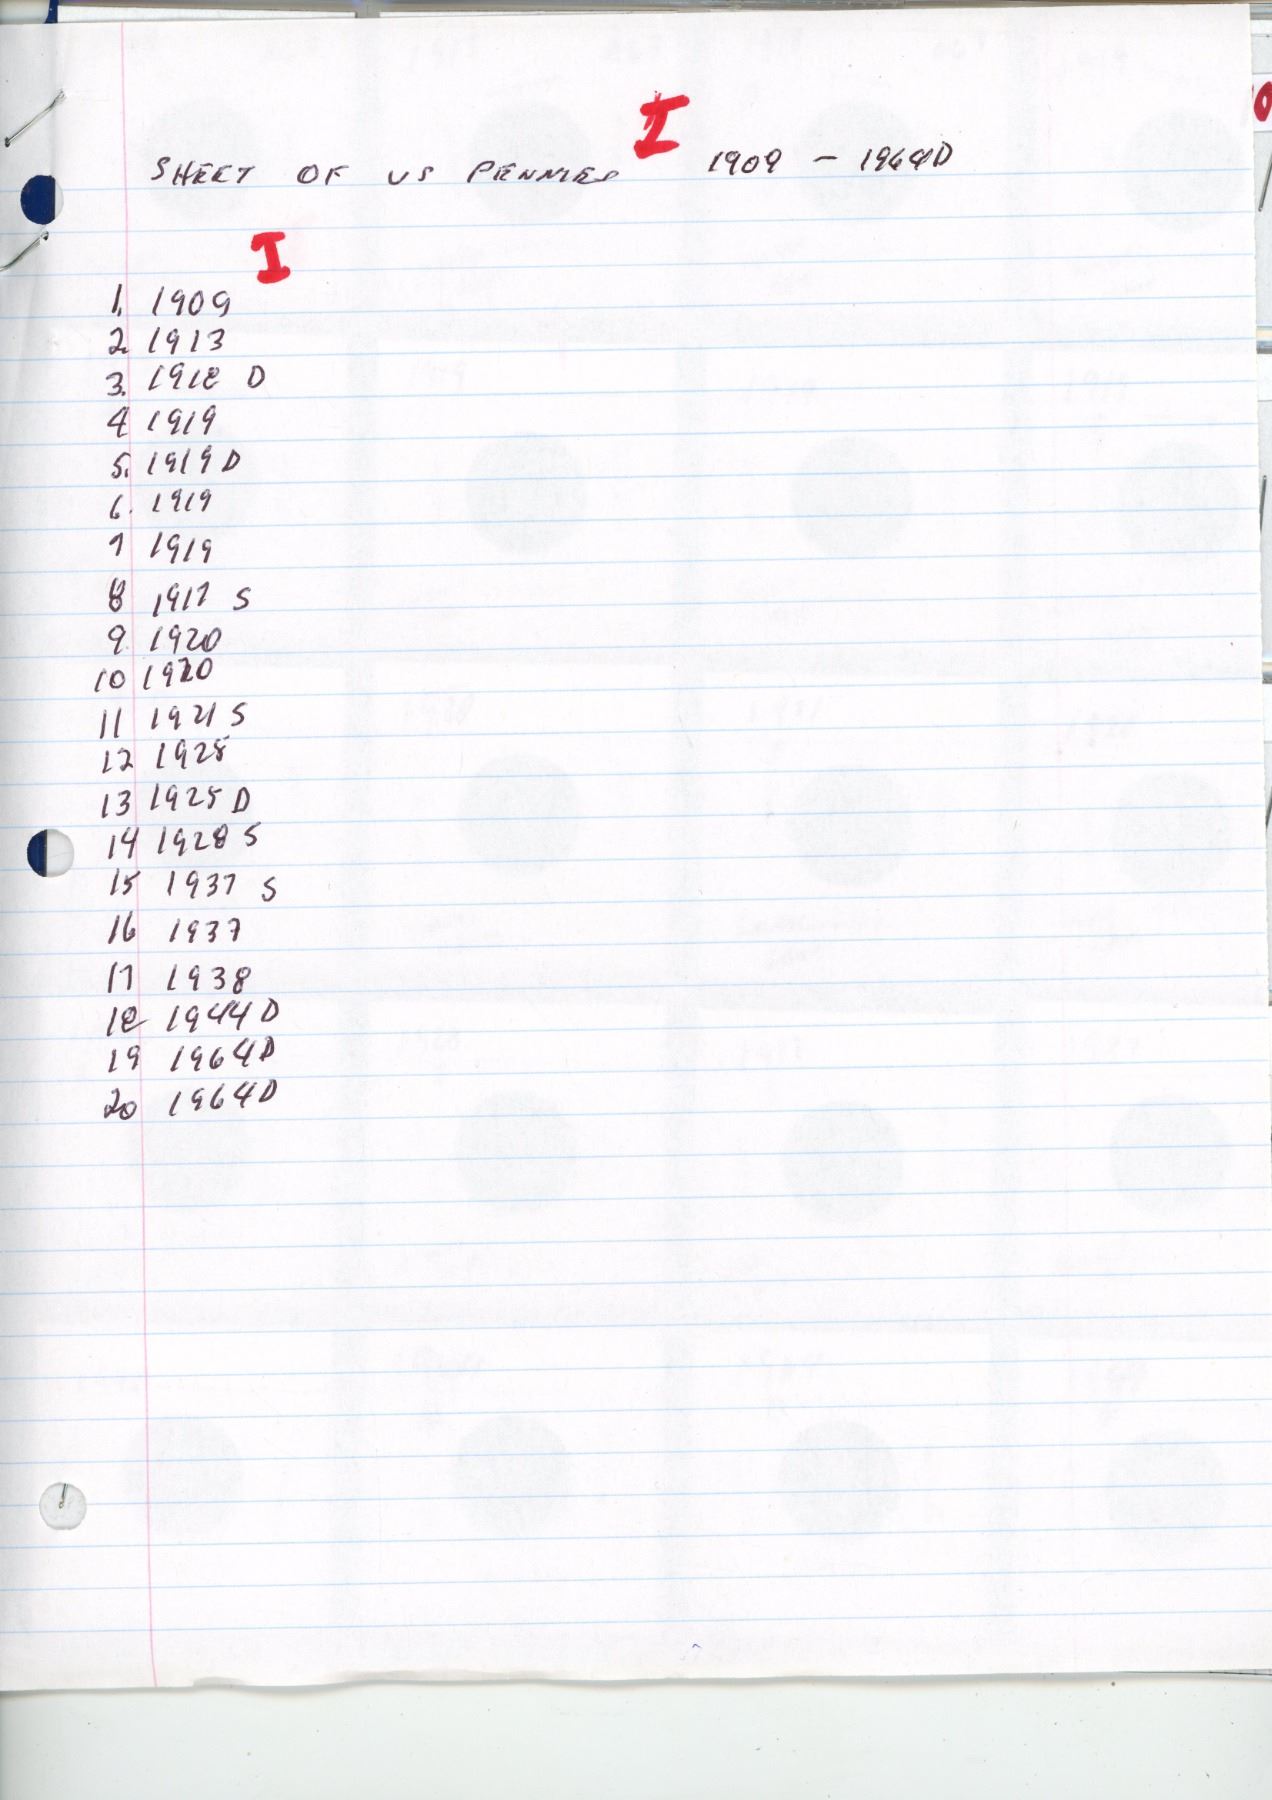 I
SHEET OF US PENNIES 1909 - 1964D
I
1. 1909
2. 1913
3. 1918 D
4 1919
5. 1919 D
6. 1919
7 1919
8 1917 S
9. 1920
10 1920
11 1921 S
12 1925
13 1925 D
14 1928 S
15 1937 S
16 1937
17 1938
18 1944 D
19 1964 D
20 1964 D